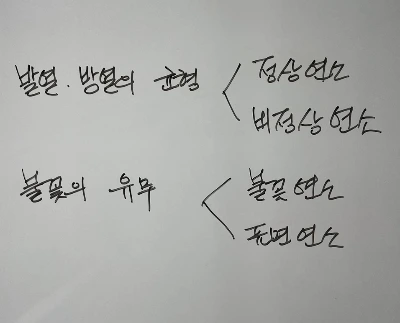 정상연소
발열·방열의 균형
비정상연소
불꽃연소
불꽃의 유무
표면연소